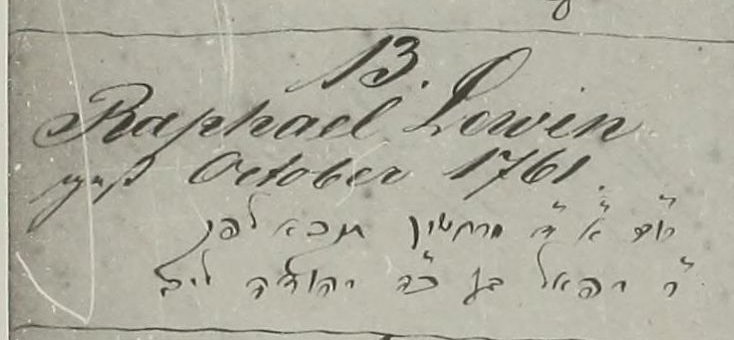 13.
Raphael Lewin
gest October 1761.
יום א' ד' מרחשון לפק
ר' רפאל בן כ"ה יהודה ליב